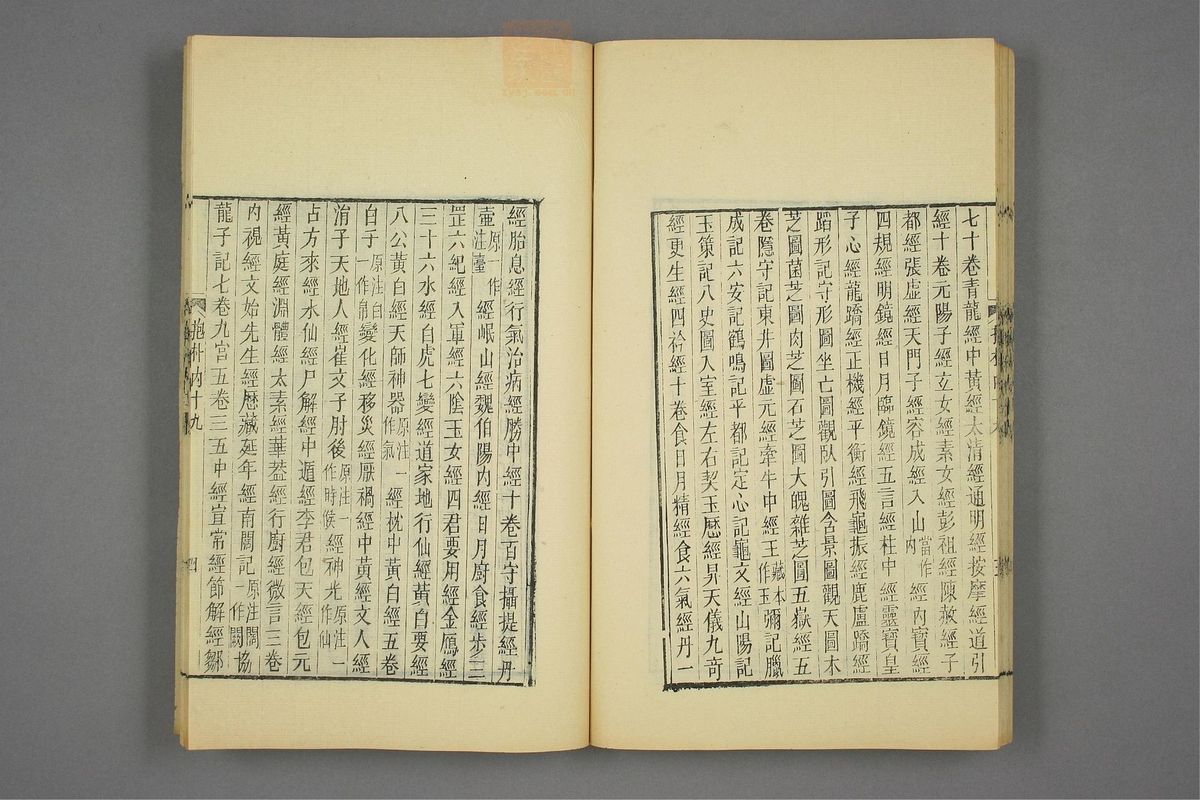 七十卷青龍經中黃經太清經通明經按摩經道引
經十卷元陽子經玄女經素女經彭祖經陳赦經子
都經張虛經天門子經容成經入山當作內經內寶經
四規經明鏡經日月臨鏡經五言經柱中經靈寶皇
子心經龍蹻經正機經平衡經飛龜振經鹿盧蹻經
蹈形記守形圖坐亡圖觀臥引圖含景圖觀天圖木
芝圖菌芝圖肉芝圖石芝圖大魄雜芝圖五嶽經五
卷隱守記東井圖虛元經牽牛中經王藏本作玉彌記臘
成記六安記鶴鳴記平都記定心記龜文經山陽記
玉策記八史圖入室經左右契玉歷經昇天儀九奇
經更生經四衿經十卷食日月精經食六氣經丹一
經胎息經行氣治病經勝中經十卷百守攝提經丹
壷原一作注臺經岷山經魏伯陽內經日月廚食經步三
罡六紀經入軍經六陰玉女經四君要用經金鴈經
三十六水經白虎七變經道家地行仙經黃白要經
八公黃白經天師神器原注一作氣經枕中黃白經五卷
白子原注白一作帛變化經移災經厭禍經中黃經文人經
涓子天地人經崔文子肘後原注一作時候經神光原注一作仙
占方來經水仙經尸解經中遁經李君包天經包元
經黃庭經淵體經太素經華葢經行廚經微言三卷
內視經文始先生經歷藏延年經南閣記原注閣一作闕協
龍子記七卷九宮五卷三五中經宣常經節解經鄒
抱朴內十九
四